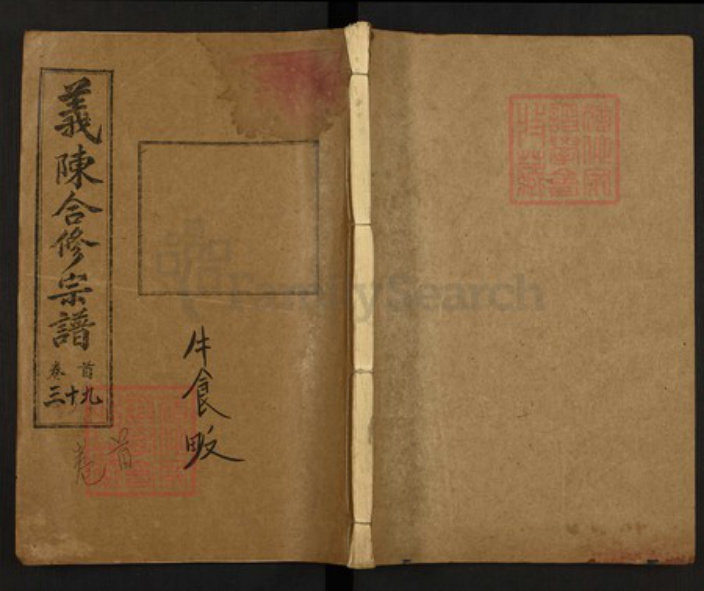 義陳合修宗譜
卷首
三十九
牛食畈
卷首
FamilySearch